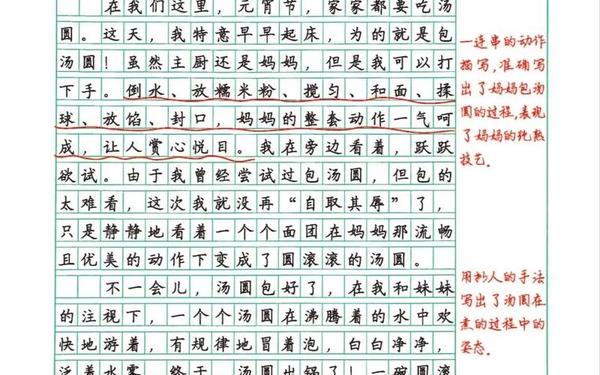 在我们这里，元宵节，家家都要吃汤
圆。这天，我特意早早起床，为的就是包
汤圆！虽然主厨还是妈妈，但是我可以打
下手。倒水、放糯米粉、搅匀、和面、揉
球、放馅、封口，妈妈的整套动作一气呵
成，让人赏心悦目。我在旁边看着，跃跃
欲试。由于我曾经尝试过包汤圆，但包的
太难看，这次我就没再“自取其辱”了，
只是静静地看着一个个面团在妈妈那流畅
且优美的动作下变成了圆滚滚的汤圆。
不一会儿，汤圆包好了，在我和妹妹
的注视下，一个个汤圆在沸腾着的水中欢
快地游着，有规律地冒着泡，白白净净，
泛着水雾。终于，汤圆出锅了！一碗圆滚
一连串的动作
描写，准确写
出了妈妈包汤
圆的过程，表现
了妈妈的纯熟
技艺.
用拟人的手法
写出了汤圆在
煮的过程中的
姿态.